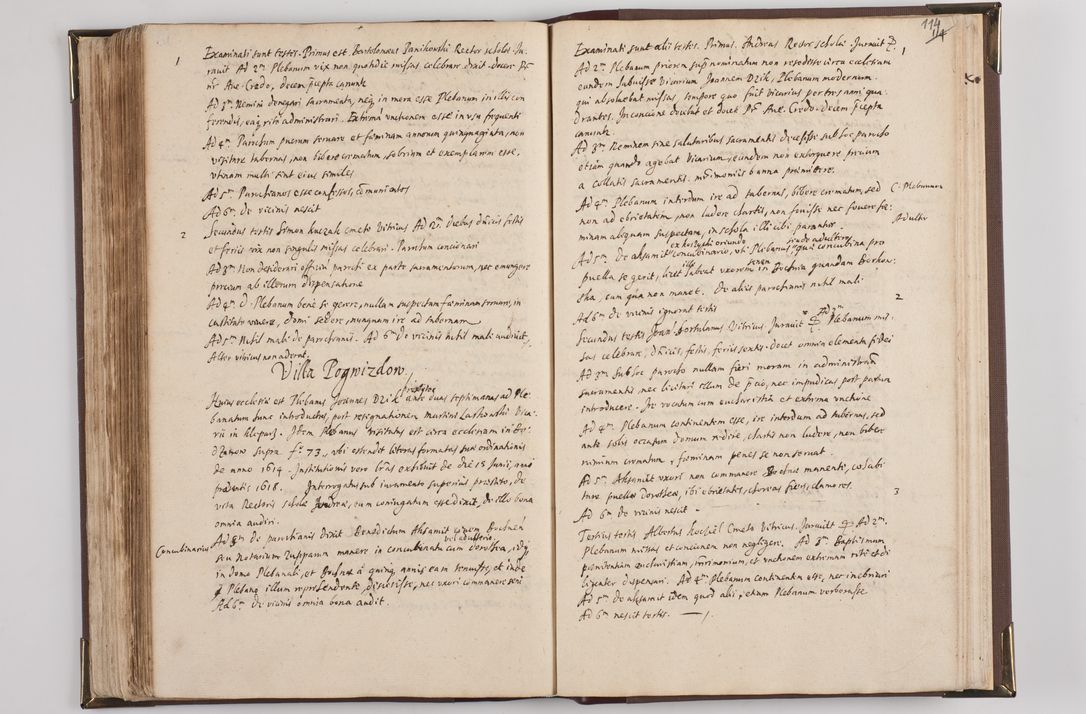 1 Examinati sunt testes. Primus est Bartolomeus Janikowski Rector scholae. Ju-
rauit. Ad 2m Plebanum vix non quotidie missas celebrare dixit. docere Pr
nr Aue. Credo, decem pcepta canunt.
Ad 3m Nemini denegari sacramenta, neq in mora esse Plebanum in illis con
ferendis, eaq rite administrari. Extrema vnctionem esse in vsu frequenti
Ad 4m Parochum puerum seruare et foeminam annorum quinquaginta, non
visitare tabernas, non bibere crematum, sobrium et exemplarem esse,
vtinam multi sint eius similes.
Ad 5m Parochianos esse confessos, comunicatos
Ad 6m de vicinis nescit
2 Secundus testis Simon Kuczak Cmeto Vitrius Ad 2m Diebus dnicis festis
et feriis vix non singulis missas celebrari. Parochum concionari
Ad 3m Non desiderari officium parochi ex parte sacramentorum, nec emungere
precium ab illorum dispensatione
Ad 4m d. Plebanum bene se gerere, nullam suspectam foeminam fouere, in
domi sedere, nunquam ire ad tabernam
Ad 5m Nihil mali de parochianis. Ad 6m De vicinis nihil mali audiuit,
Alter vitricus non aderat.
Villa Pogwizdow.
Huius ecclesiae est Plebanus Joannes Dzik ante duas septimanas ad Ple-
banatum hunc introductus, post resignationem Martini Laskowski Vica-
rii in Item Plebanus visitatus est circa ecclesiam in
supra. f. 73. vbi ostendit literas formatas suae ordinationis
de anno 1614. Institutionis vero lras exhibuit de die 15 Junii, anni
pntis 1618. Interrogatus sub iuramento superius praestito, de
vita Rectoris scholae Andrea, eum coniugatum esse dixit, de illo bona
omnia audiri.
Concubinarius Ad 8m De parochianis dixit Benedictum Aksamit
seu notarium manere in concubinatu cum Dorothea, idq
vel adulterio
in domo Plebanali, et Bochnae a quinq annis eam tenuisse, et inde
Plebano illum reprehendente, discessisse, nec vxori commanere
Ad 6m De vicinis omnia bona audit.

114
Examinati sunt alii testes. Primus. Andreas Rector scholae. Jurauit 1
Ad 2m Plebanum priorem sup nominatum non resedisse circa ecclesiam
eandem subuisse Vicarium Joannem Dzik, Plebanum modernum.
qui absoluebat missas tempore quo fuit Vicarius per tres anni qua-
drantes. In concione docebat et docet Pr Aue. Credo. Decem pcepta
canunt.
Ad 3m Neminem sine salutaribus sacramentis decessisse sub hoc parocho
etiam quando agebat Vicarium, eundem non extorquere precium
a collatis sacramentis. mrimoniis banna praemittere.
Ad 4m Plebanum interdum ire ad tabernas, bibere crematum, sed C. Plebanum
non ad ebrietatem, non ludere chartis, non fouisse nec fouere foe-
minam aliquam suspectam, in schola illi cibi parantur. Adulter
Ad 5m De aksamit concubinario, Plebanus qua concubina pro
puella se gerit, habet vxorem in Bochnia quandam
cum qua non manet. De aliis parochianis nihil mali.
Ad 6m De vicinis ignorat testis 2
Secundus testis Joan: Hortulanus Vitricus. Jurauit. Ad 2m Plebanum mis-
sas celebrare, dnicis, festis, feriis sextis. docet omnia elementa fidei
Ad 3m Sub hoc parocho nullam fieri moram in administraom
Sacramenti, nec licitari illum de pcio, nec impudicas post partum
introducere. Ire vocatum cum eucharistia et extrema vnctione
Ad 4m. Plebanum continentem esse, ire interdum ad tabernas, sed
ante solis occasum domum redire, chartis non ludere, non bibere
nimium crematum, foeminam penes se non seruat.
Ad 5m Aksamit vxori non commanere Bochnae manenti, cohabi-
tare puellae Dorotheae, ibi ebrietates, choreas fieri, clamores.
Ad 6m De vicinis nescit. 3
Tertius testis Albertus Cmeto Vitricus. Jurauit. Ad 2m.
Plebanum missas et concionem non negligere. Ad 3m Baptismum
poenitentiam eucharistiam, mrimonium, et vnctionem extremam rite et di-
ligenter dispensari. Ad 4m Plebanum continentem esse, nec inebriari
Ad 5m De aksamit idem quod alii, etiam Plebanum verberasse
Ad 6m nescit testis.